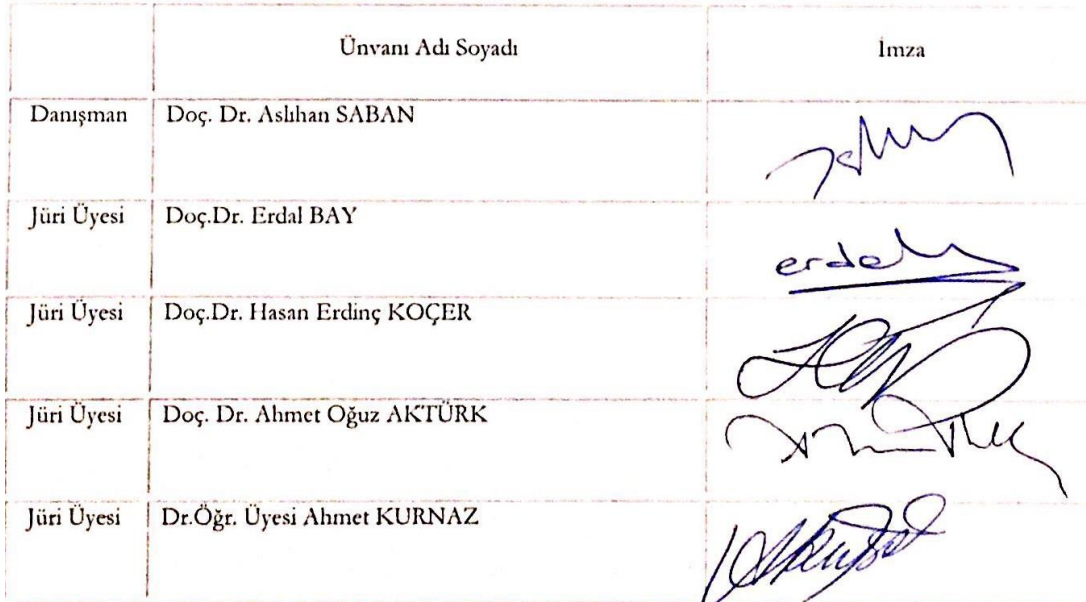 Ünvanı Adı Soyadı İmza
Danışman Doç. Dr. Aslıhan SABAN
Jüri Üyesi Doç.Dr. Erdal BAY
erdal
Jüri Üyesi Doç.Dr. Hasan Erdinç KOÇER
Jüri Üyesi Doç. Dr. Ahmet Oğuz AKTÜRK
Jüri Üyesi Dr.Öğr. Üyesi Ahmet KURNAZ